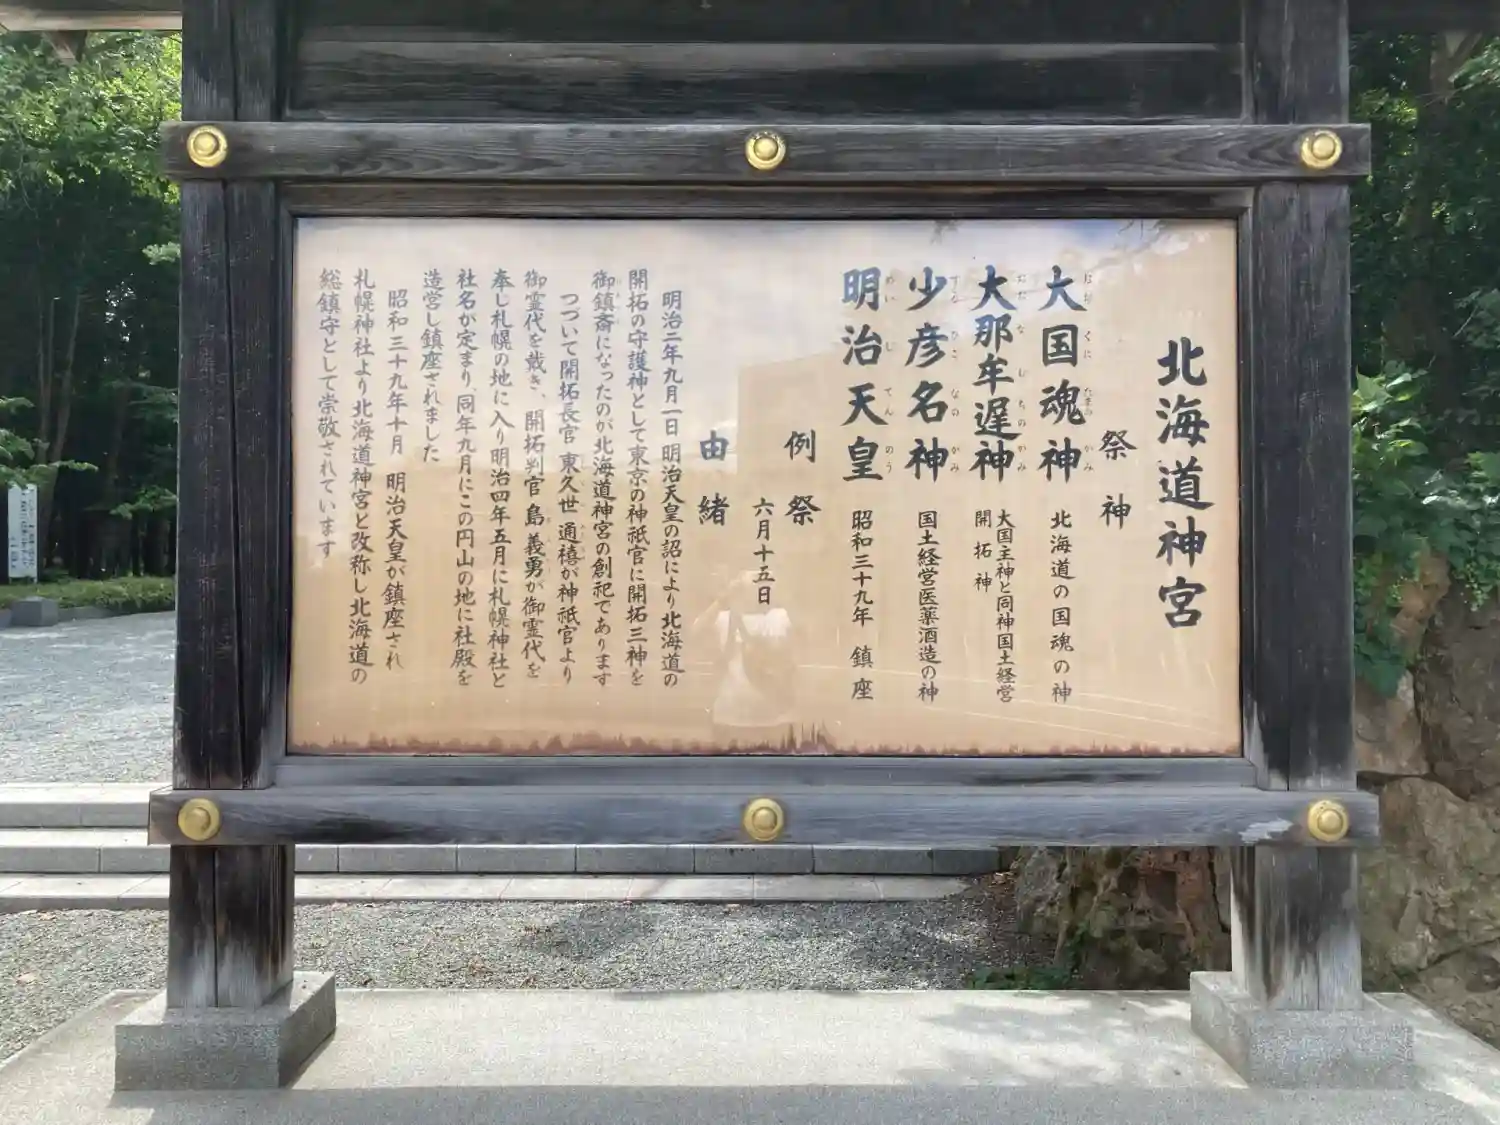 北海道神宮
祭神
大国魂神 北海道の国魂の神
おおくにたまのかみ
大那牟遅神 大国主神と同神国土経営
開拓神
おおなむちのかみ
少彦名神 国土経営医薬酒造の神
すくなひこなのかみ
明治天皇 昭和三十九年 鎮座
めいじてんのう
例祭
六月十五日
由緒
明治二年九月一日 明治天皇の詔により北海道の
開拓の守護神として東京の神祇官に開拓三神を
御鎮斎になったのが北海道神宮の創祀であります
つづいて開拓長官 東久世 通禧が神祇官より
御霊代を戴き、開拓判官 島 義勇が御霊代を
奉じ札幌の地に入り明治四年五月に札幌神社と
社名が定まり、同年九月にこの円山の地に社殿を
造営し鎮座されました
昭和三十九年十月 明治天皇が鎮座され
札幌神社より北海道神宮と改称し北海道の
総鎮守として崇敬されています